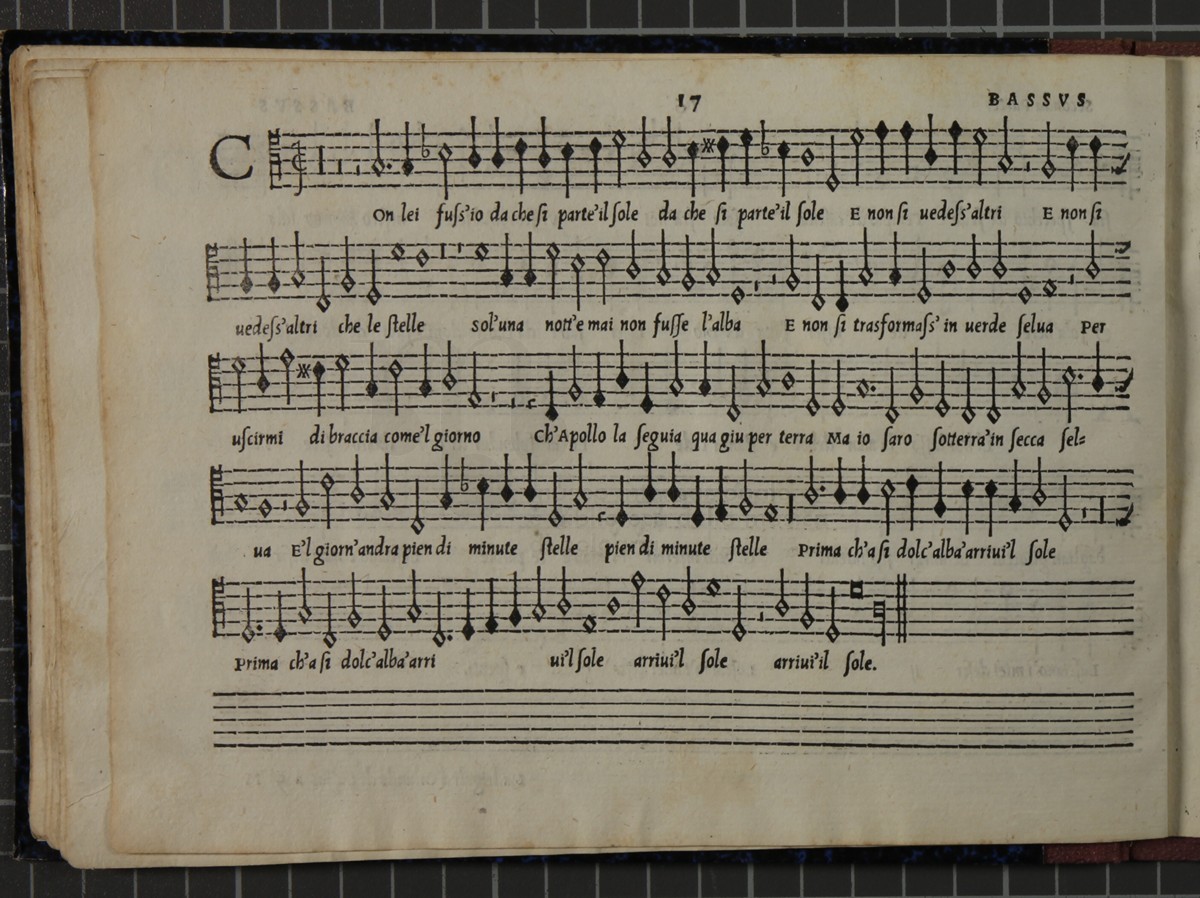 17 BASSVS
COn lei fuſs'io da che ſi parte'il ſole da che ſi parte'il ſole E non ſi uedeſs'altri E non ſi
uedeſs'altri che le ſtelle Sol'una nott'e mai non fuſſe l'alba E non ſi trasformaſs'in uerde ſelua Per
uſcirmi di braccia come'l giorno Ch'Apollo la ſeguia qua giu per terra Ma io ſaro ſotterra'in ſecca ſel=
ua E'l giorn'andra pien di minute ſtelle pien di minute ſtelle Prima ch'a ſi dolc'alba'arriui'l ſole
Prima ch'a ſi dolc'alba'arri ui'l ſole arriui'l ſole arriui'il ſole.